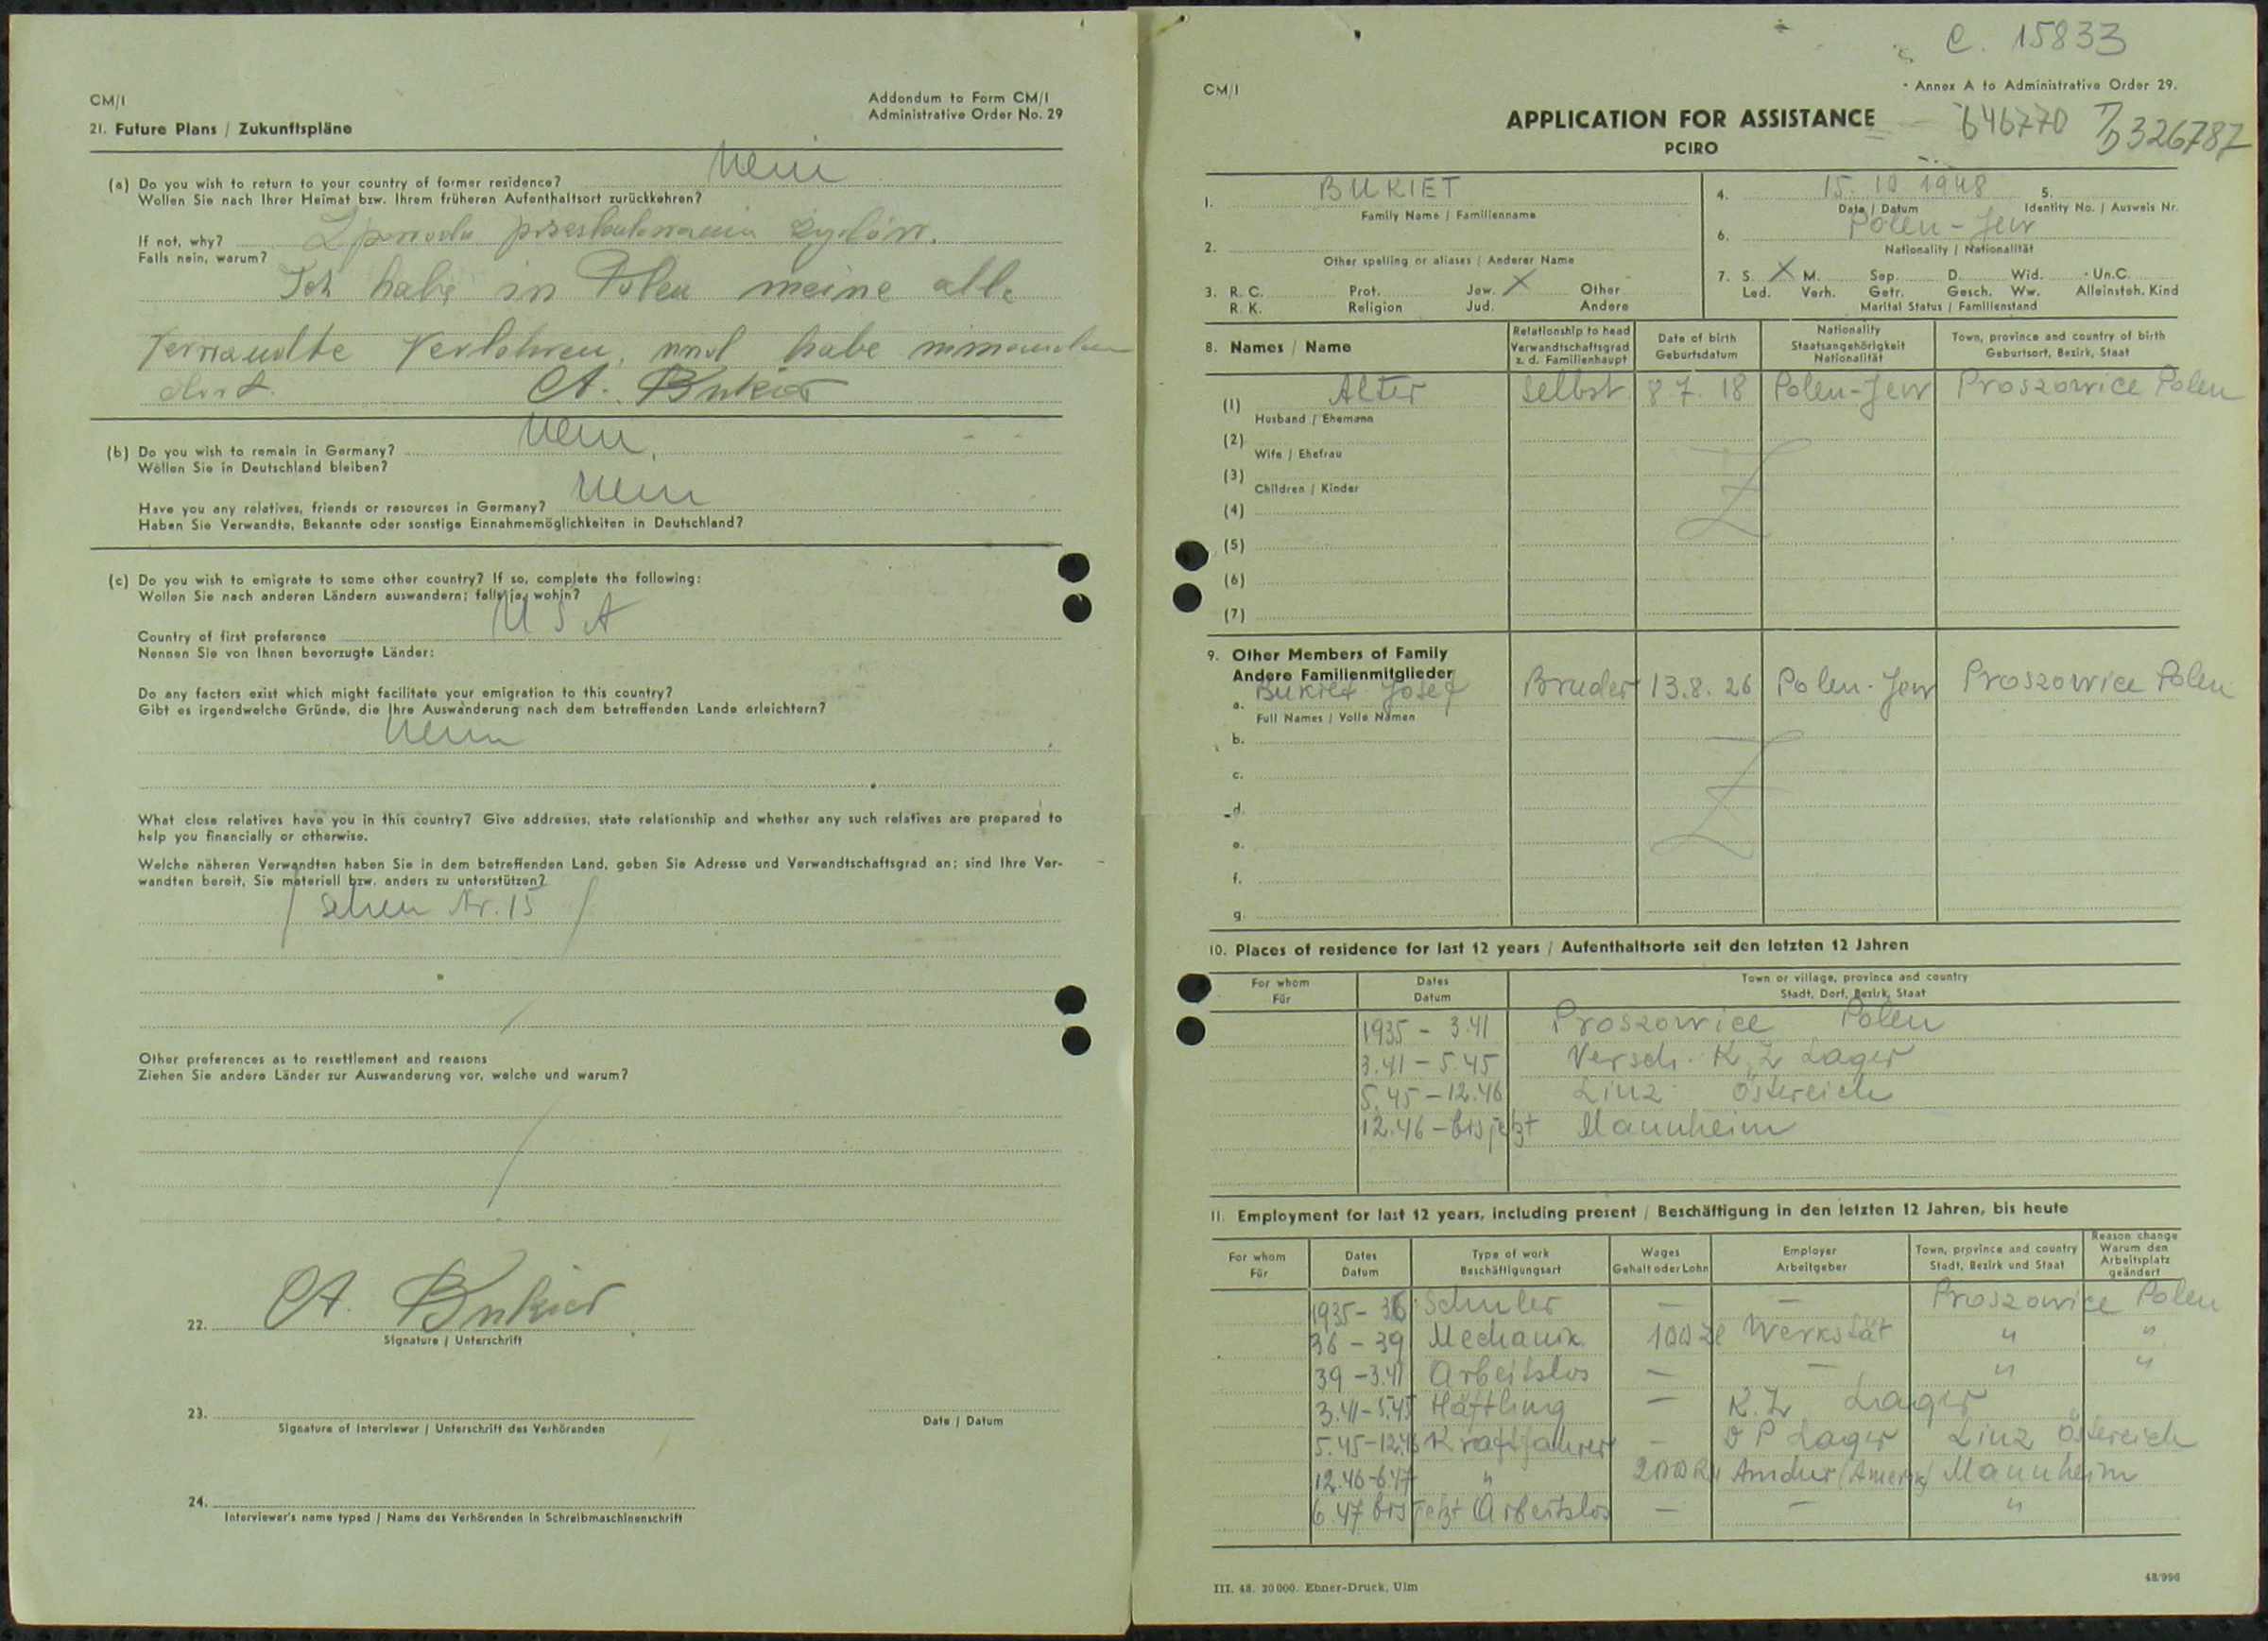 CM/I
Addendum to Form CM/I
Administrative Order No. 29
21. Future Plans / Zukunftspläne
(a) Do you wish to return to your country of former residence? Nein
Wollen Sie nach Ihrer Heimat bzw. Ihrem früheren Aufenthaltsort zurückkehren?
If not, why? Z powodu prześladowania Żydów.
Falls nein, warum?
Ich habe in Polen meine alle
Verwandte Verlohren, und habe nimanden
dort. A. Bukiet
(b) Do you wish to remain in Germany? Nein,
Wollen Sie in Deutschland bleiben?
Have you any relatives, friends or resources in Germany? Nein
Haben Sie Verwandte, Bekannte oder sonstige Einnahmemöglichkeiten in Deutschland?
(c) Do you wish to emigrate to some other country? If so, complete the following:
Wollen Sie nach anderen Ländern auswandern; falls ja, wohin?
Country of first preference USA
Nennen Sie von Ihnen bevorzugte Länder:
Do any factors exist which might facilitate your emigration to this country?
Gibt es irgendwelche Gründe, die Ihre Auswanderung nach dem betreffenden Lande erleichtern?
Nein
What close relatives have you in this country? Give addresses, state relationship and whether any such relatives are prepared to
help you financially or otherwise.
Welche näheren Verwandten haben Sie in dem betreffenden Land, geben Sie Adresse und Verwandtschaftsgrad an; sind Ihre Ver-
wandten bereit, Sie materiell bzw. anders zu unterstützen?
/ sehen Nr. 15 /
Other preferences as to resettlement and reasons
Ziehen Sie andere Länder zur Auswanderung vor, welche und warum?
22. A. Bukiet
Signature / Unterschrift
23.
Signature of Interviewer / Unterschrift des Verhörenden
Date / Datum
24.
Interviewer's name typed / Name des Verhörenden in Schreibmaschinenschrift
C. 15833
CM/I
Annex A to Administrative Order 29.
APPLICATION FOR ASSISTANCE
PCIRO
646770 D 326787
1. BUKIET
Family Name / Familienname
4. 15. 10. 1948 5.
Date / Datum Identity No. / Ausweis Nr.
2.
Other spelling or aliases / Anderer Name
6. Polen - Jew
Nationality / Nationalität
3. R. C. Prot. Jew. X Other
R. K. Religion Jud. Andere
7. S. X M. Sep. D. Wid. Un.C.
Led. Verh. Getr. Gesch. Ww. Alleinsteh. Kind
Marital Status / Familienstand
8. Names / Name
Relationship to head
Verwandtschaftsgrad
z. d. Familienhaupt
Date of birth
Geburtsdatum
Nationality
Staatsangehörigkeit
Nationalität
Town, province and country of birth
Geburtsort, Bezirk, Staat
(1) Alter Selbst 8 7. 18 Polen-Jew Proszowice Polen
Husband / Ehemann
(2)
Wife / Ehefrau
(3)
Children / Kinder
(4)
(5)
(6)
(7)
9. Other Members of Family
Andere Familienmitglieder
a. Bukiet Josef Bruder 13.8.26 Polen-Jew Proszowice Polen
Full Names / Volle Namen
b.
c.
d.
e.
f.
g.
10. Places of residence for last 12 years / Aufenthaltsorte seit den letzten 12 Jahren
For whom
Für
Dates
Datum
Town or village, province and country
Stadt, Dorf, Bezirk, Staat
1935 - 3.41 Proszowice Polen
3.41 - 5.45 Versch. K.Z Lager
5.45 - 12.46 Linz Östereich
12.46 - bis jetzt Mannheim
11. Employment for last 12 years, including present / Beschäftigung in den letzten 12 Jahren, bis heute
For whom
Für
Dates
Datum
Type of work
Beschäftigungsart
Wages
Gehalt oder Lohn
Employer
Arbeitgeber
Town, province and country
Stadt, Bezirk und Staat
Reason change
Warum den
Arbeitsplatz
geändert
1935 - 36 Schuler — — Proszowice Polen
36 - 39 Mechanik 100 Zl Werkstät " "
39 - 3.41 Arbeitslos — — " "
3.41 - 5.45 Häftling — K.Z Lager
5.45 - 12.46 Kraftfahrer — DP Lager Linz Östereich
12.46 - 6.47 " 200 RM Amdur (Amerik) Mannheim
6.47 bis jetzt Arbeitslos — — "
III. 48. 20000. Ebner-Druck, Ulm
48/996